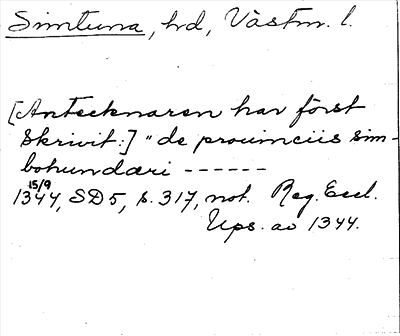 Simtuna, hd, Västm. l.
[Antecknaren har först
skrivit:] "de prouinciis sim-
bohundæri ------
15/9
1344, SD5, s. 317, not. Reg. Eccl.
Ups. av 1344.